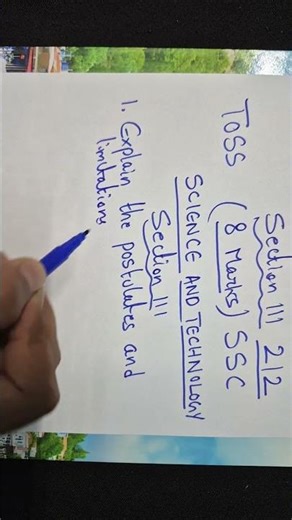 Section 111 212
TOSS (8 Marks) SSC
SCIENCE AND TECHNOLOGY
Section 111
1. Explain the postulates and
limitations